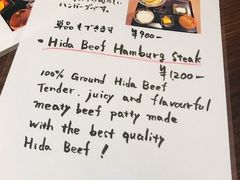 ハンバーグです。
単品もできます ¥900-
• Hida Beef Hamburg Steak
¥1200-
100% Ground Hida Beef
Tender. juicy and flavourful
meaty beef patty made
with the best quality
Hida Beef !